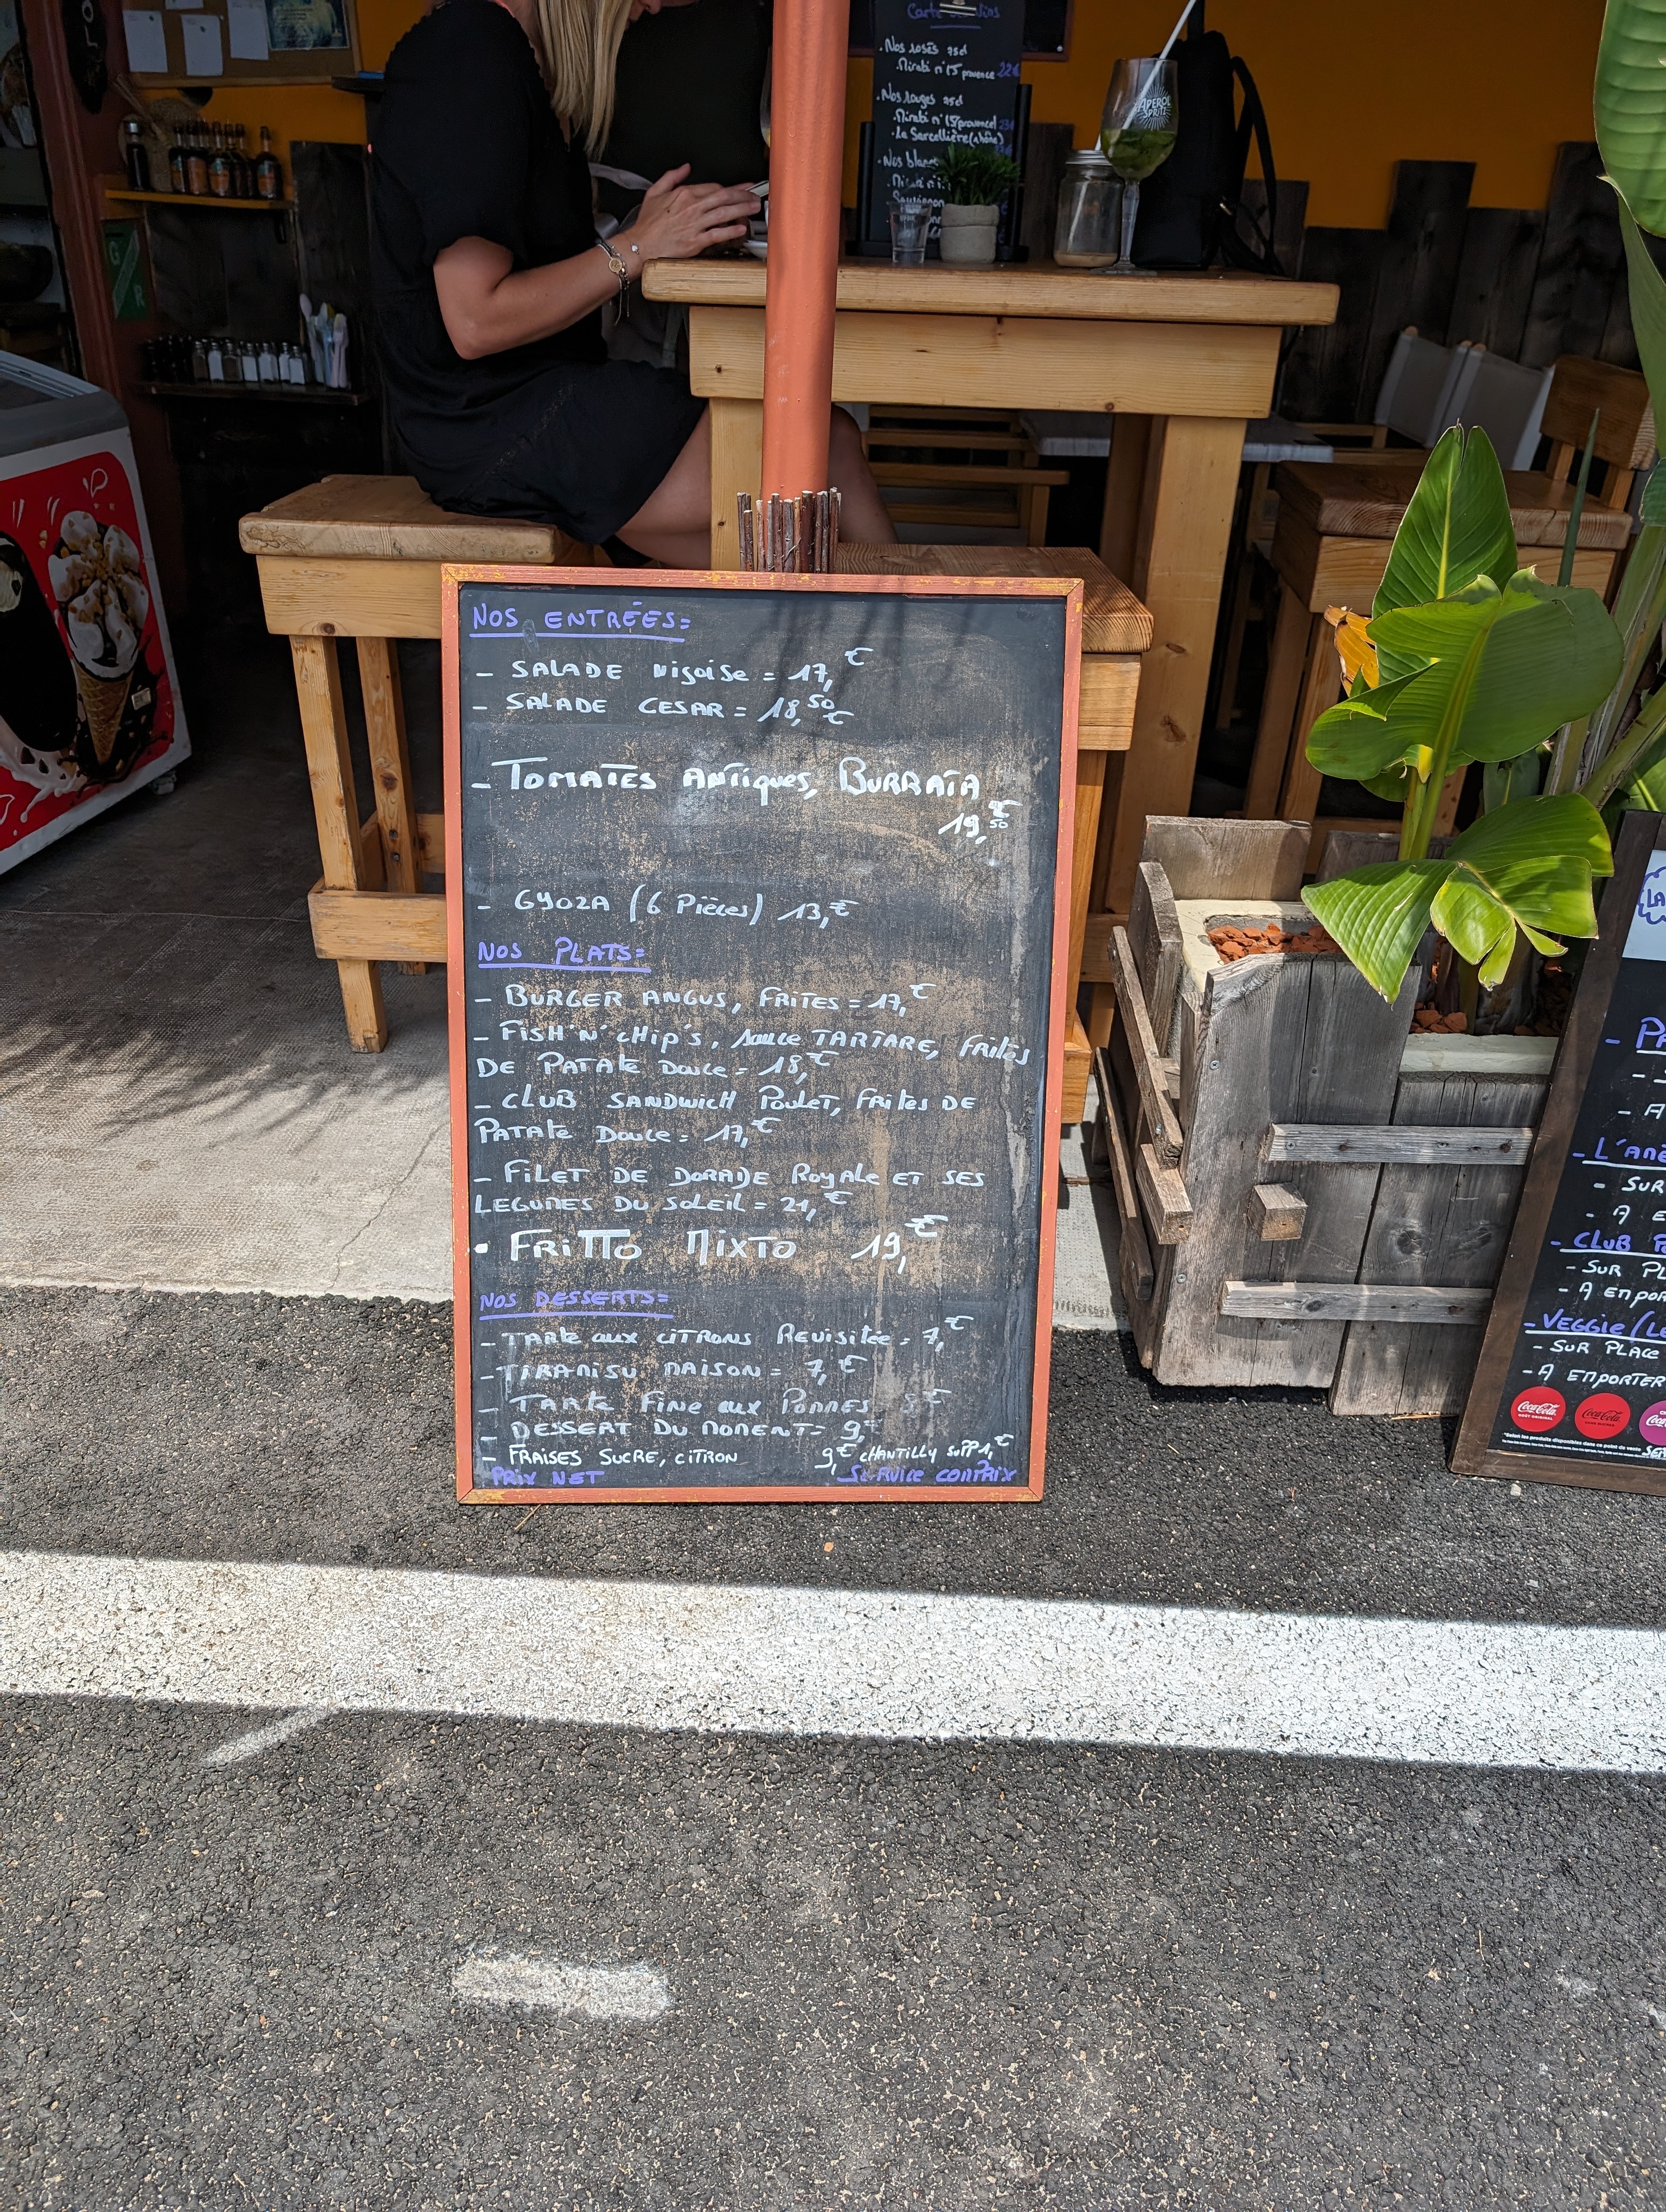 Carte des Vins
. Nos rosés 75cl
Mirabi n°15 provence 22€
. Nos rouges 75cl
. Nos blancs
APEROL
SPRITZ
NOS ENTRÉES=
- SALADE Niçoise = 17,€
- SALADE CESAR = 18,50€
- TOMATES ANTiques, BURRATA
19,€50
- GYOZA (6 Pièces) 13,€
NOS PLATS=
- BURGER ANGUS, FRITES = 17,€
- FISH'N'CHIP'S, sauce TARTARE, FRites
DE PATATE Douce = 18,€
- CLUB SANDWICH Poulet, FRites DE
PATATE Douce = 17,€
- FiLET DE DORADE Royale ET SES
LEGUMES DU SOLEIL = 21,€
• FRiTTO MiXTO 19,€
NOS DESSERTS=
- TARTE aux CITRONS Revisitée = 7,€
- TIRAMISU MAISON = 7,€
- TARTE Fine aux POMMES 8€
- DESSERT DU MOMENT = 9,€
- FRAISES SUCRE, CITRON 9,€ CHANTILLY SUPP 1,€
PRIX NET SERVICE COMPRIX
- A
L'
- SUR
- A E
- CLUB P
- SUR PL
- A EMPOR
- VEGGIE / LE
- SUR PLACE
- A EMPORTER
Coca-Cola
Coca-Cola